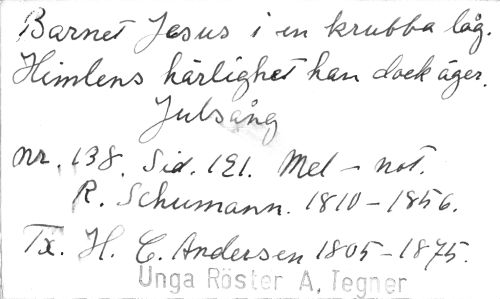 Barnet Jesus i en krubba låg.
Himlens härlighet han dock äger.
Julsång
nr. 138. Sid. 121. Mel – not.
R. Schumann. 1810–1856.
Tx. H. C. Andersen 1805–1875.
Unga Röster A. Tegner